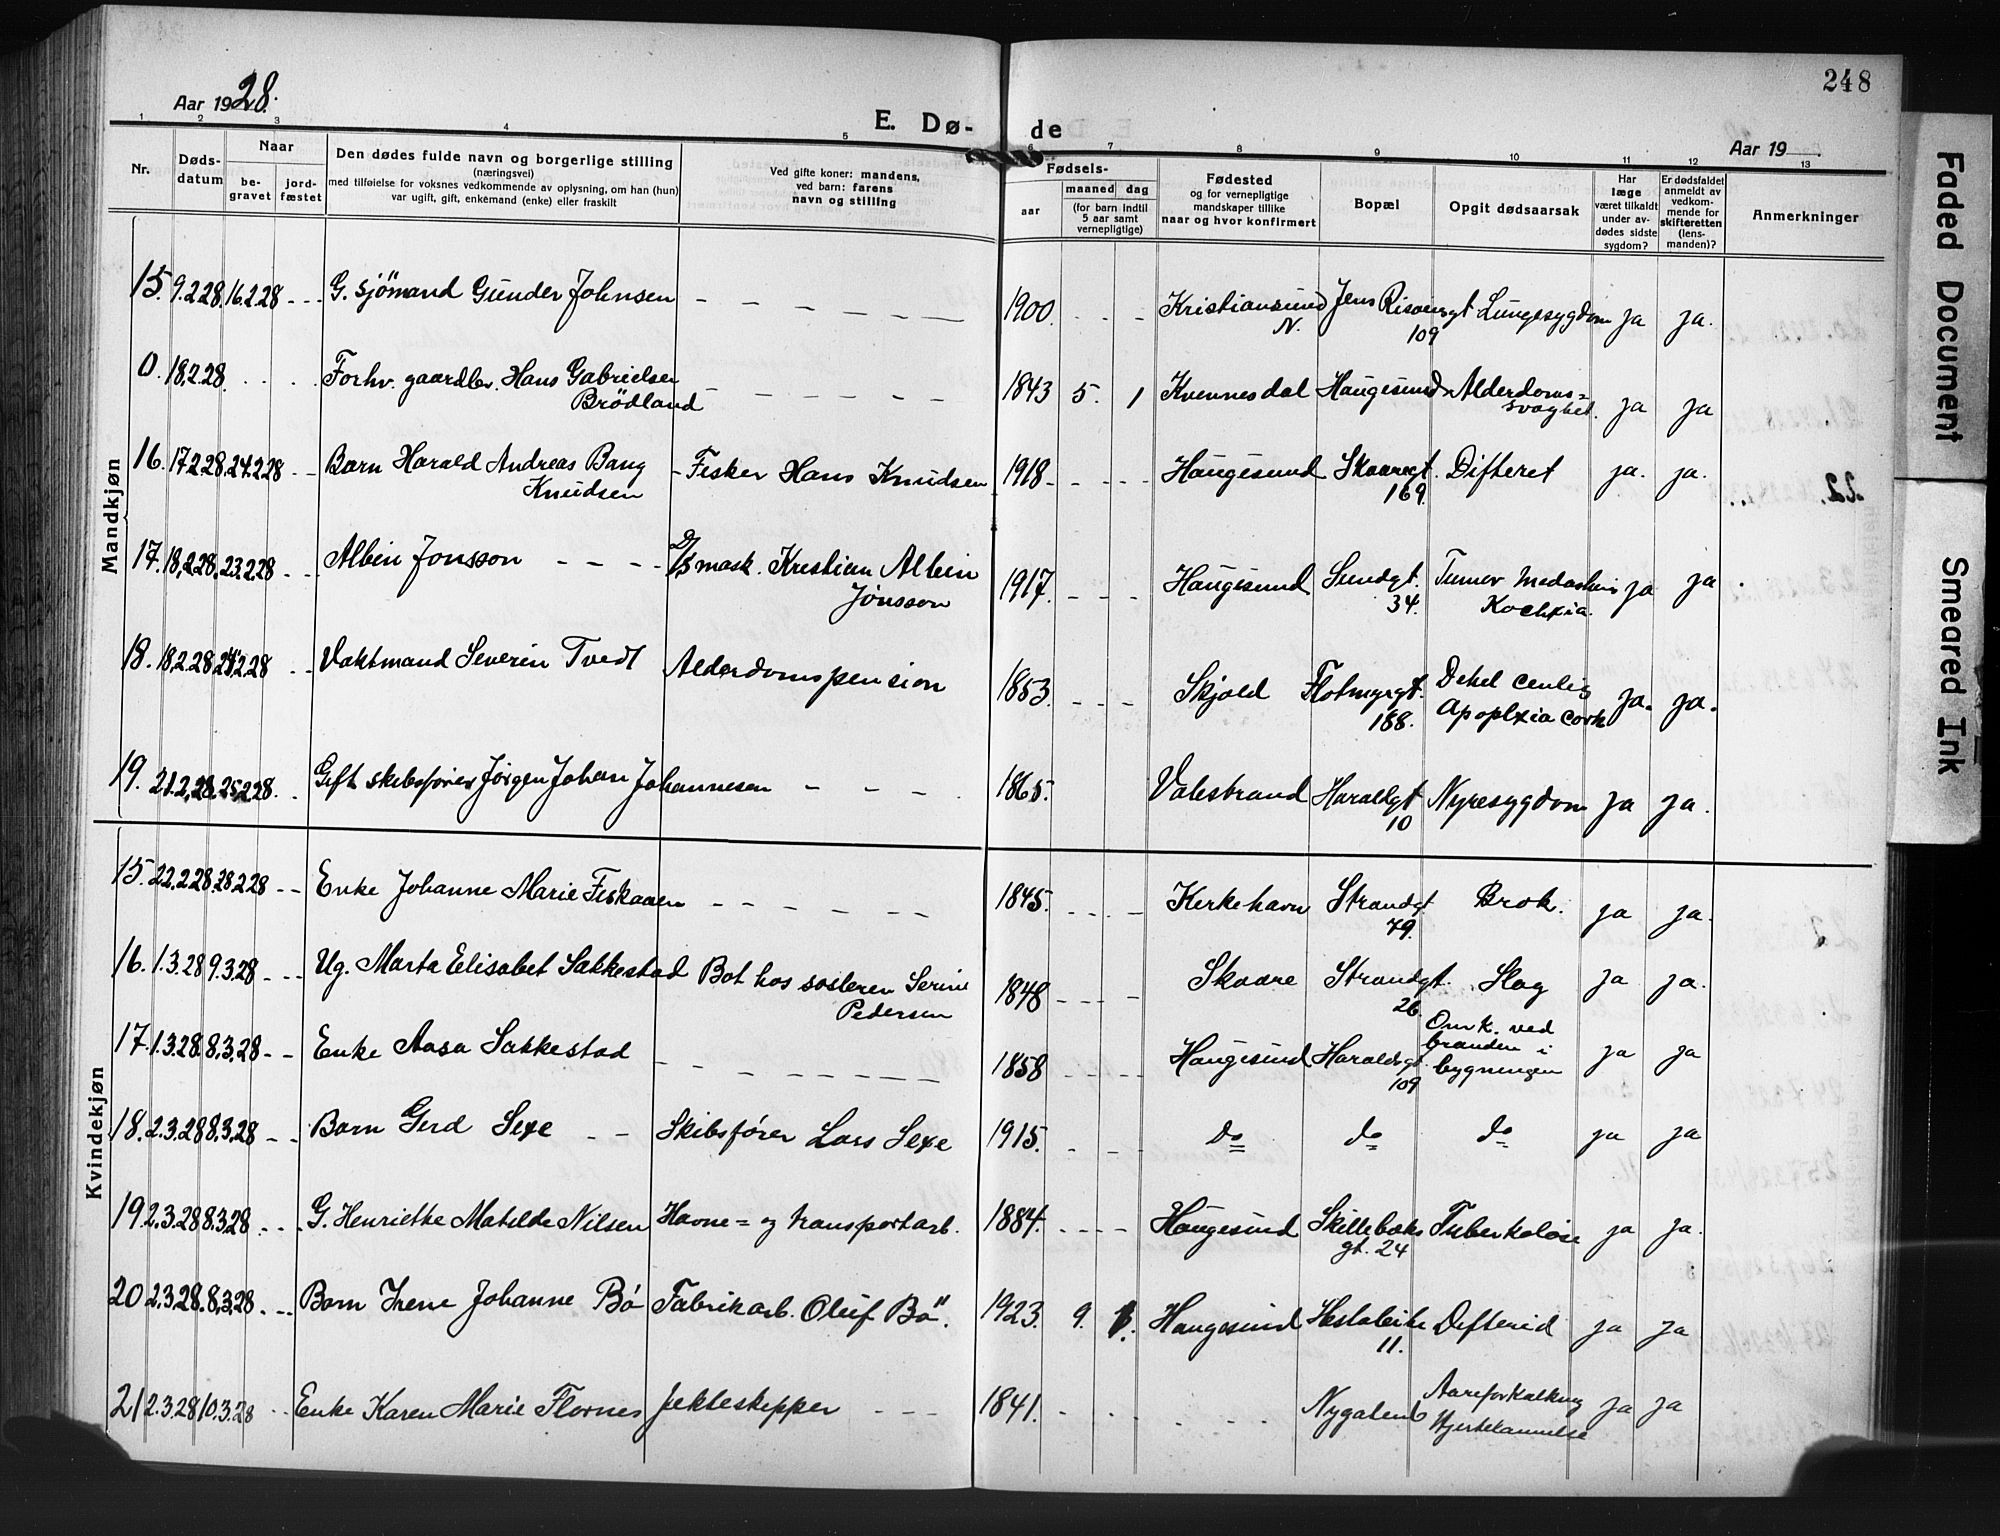 248
Aar 1928.
E. Dø-
de
Aar 19
1 2 3 4 5 6 7 8 9 10 11 12 13
Nr.
Døds-
datum
Naar
be-
gravet
jord-
fæstet
Den dødes fulde navn og borgerlige stilling
(næringsvei)
med tilføielse for voksnes vedkommende av oplysning, om han (hun)
var ugift, gift, enkemand (enke) eller fraskilt
Ved gifte koner: mandens,
ved barn: farens
navn og stilling
Fødsels-
aar
maaned
dag
(for barn indtil
5 aar samt
vernepligtige)
Fødested
og for vernepligtige
mandskaper tillike
naar og hvor konfirmert
Bopæl
Opgit dødsaarsak
Har
læge
været tilkaldt
under av-
dødes sidste
sygdom?
Er dødsfaldet
anmeldt av
vedkom-
mende for
skifteretten
(lens-
manden)?
Anmerkninger
Mandkjøn
15. 9.2.28. 16.2.28 - - - G. sjömand Gunder Johnsen - - - - - 1900. . . - Kristiansund Jens Risoensgt Lungesygdom ja ja.
N. 109
0. 18.2.28 . . . . Forhv. gaardbr. Hans Gabrielsen - - - - - - 1843 5. 1 Kvennesdal Haugesund Alderdoms=
Brödland svaghet. ja ja
16. 17.2.28. 24.2.28 - - Barn Harald Andreas Bang - Fisker Hans Knudsen 1918 - - - - Haugesund Skaaregt. Difteret ja. ja.
Knudsen 169.
17. 18.2.28. 23.2.28 - - - Albin Jonsson - - - D/S mask. Kristian Albin 1917. - - - Haugesund Sundgt. Tumor ja ja
Jonsson 34.
18. 18.2.28. 24.2.28 - - Vaktmand Severin Tvedt Alderdomspension 1853. - - - Skjold Flotmyrgt. ja. ja.
188. Apoplxia
19. 21.2.28. 25.2.28. . Gift skibsfører Jørgen Johan Johannesen - - - . 1865. Valestrand Haraldgt Nyresygdom ja ja.
10
Kvindekjøn
15. 22.2.28. 28.2.28 - - Enke Johanne Marie Fiskaaen - - - - - - 1845. - - - - Kirkehavn Strandgt Brok. ja ja.
79.
16. 1.3.28 9.3.28 - - - Ug. Marta Elisabet Sakkestad Bot hos søsteren Serine 1848 - - - - Skaare Strandgt. Slag ja ja.
Pedersen 26.
17. 1.3.28. 8.3.28 - - Enke Aasa Sakkestad - - - - - - - - 1858 - - - - Haugesund Haraldsgt. Omk. ved
branden i
bygningen ja ja
109
18. 2.3.28 8.3.28 - - Barn Gerd Sexe - - Skibsfører Lars Sexe 1915. - - do do do ja ja
19. 2.3.28 8.3.28 . - - G. Henriette Matilde Nilsen Havne= og transportarb. 1884. - - - - Haugesund Skillebæks Tuberkoløse ja ja.
gt. 24
20 2.3.28. 8.3.28 . - - Barn Irene Johanne Bö Fabrikarb. Oluf Bö. 1923. 9. Haugesund 11. Difterid ja ja
21 2.3.28 10.3.28 . . Enke Karen Marie Flornes jekteskipper - - - 1841. Nygaten 6 Aareforkalkning ja ja
Hjertelammelse
Faded Document
Smeared Ink